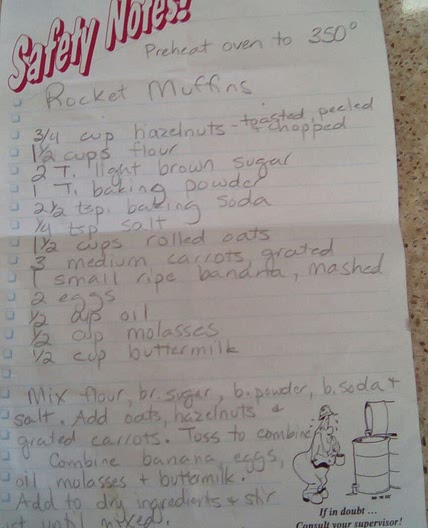 Safety Notes!
Preheat oven to 350°
Rocket Muffins
3/4 cup hazelnuts - toasted, peeled + chopped
1 1/2 cups flour
2 T. light brown sugar
1 T. baking powder
2 1/2 tsp. baking soda
1/4 tsp salt
1 1/2 cups rolled oats
3 medium carrots, grated
1 small ripe banana, mashed
2 eggs
1/2 cup oil
1/2 cup molasses
1/2 cup buttermilk
Mix flour, br. sugar, b. powder, b. soda +
salt. Add oats, hazelnuts +
grated carrots. Toss to combine
Combine banana, eggs,
oil molasses + buttermilk.
Add to dry ingredients + stir
just until mixed.
If in doubt ...
Consult your supervisor!